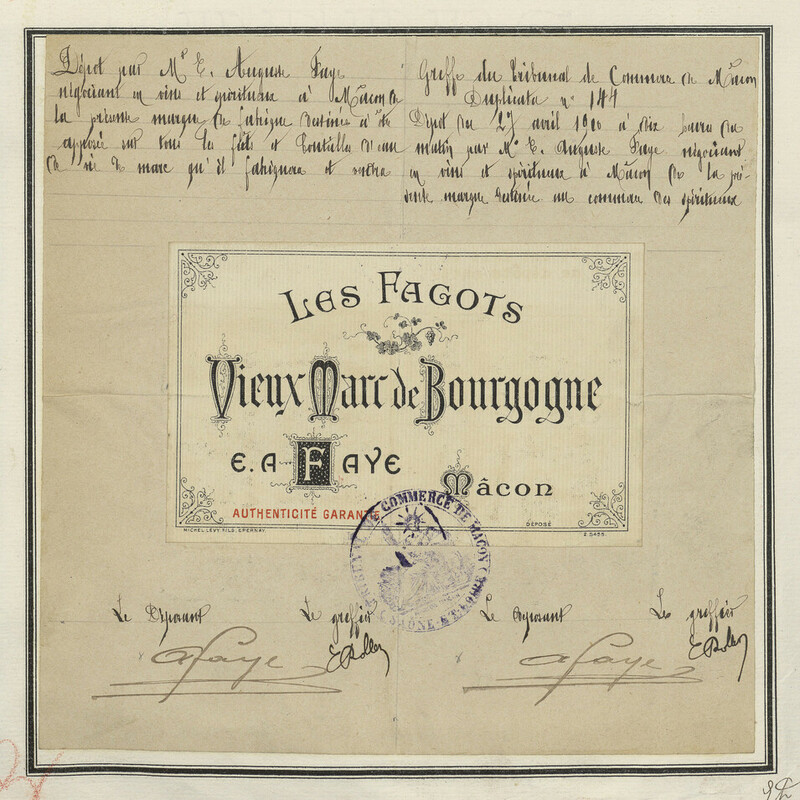 Dépot par Mr E. Auguste Faye
négociant en vins et spiritueux à Mâcon de
la présente marque de fabrique destinée à être
apposée sur tous les fûts et bouteilles d'eau
de vie de marc qu'il fabriquera et vendra
Greffe du Tribunal de Commerce de Mâcon
Duplicata no 144
Dépot du 27 avril 1900 à dix heures du
matin par Mr E. Auguste Faye négociant
en vins et spiritueux à Mâcon de la pré-
sente marque destinée au commerce des spiritueux
LES FAGOTS
Vieux Marc de Bourgogne
E. A FAYE
Mâcon
AUTHENTICITÉ GARANTIE
DÉPOSÉ
MICHEL LEVY FILS, EPERNAY
TRIBUNAL DE COMMERCE DE MACON
SAÔNE-&-LOIRE
Le Déposant
Le greffier
Le Déposant
Le greffier
a faye
a faye